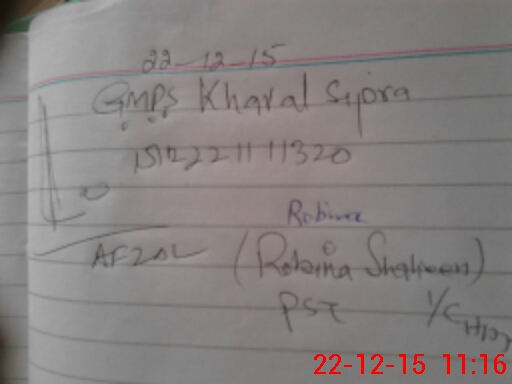 22-12-15
GMPS Kharal Sipra
15122211111320
Robina
AFZAL (Robina Shaheen)
PST I/C
22-12-15 11:16